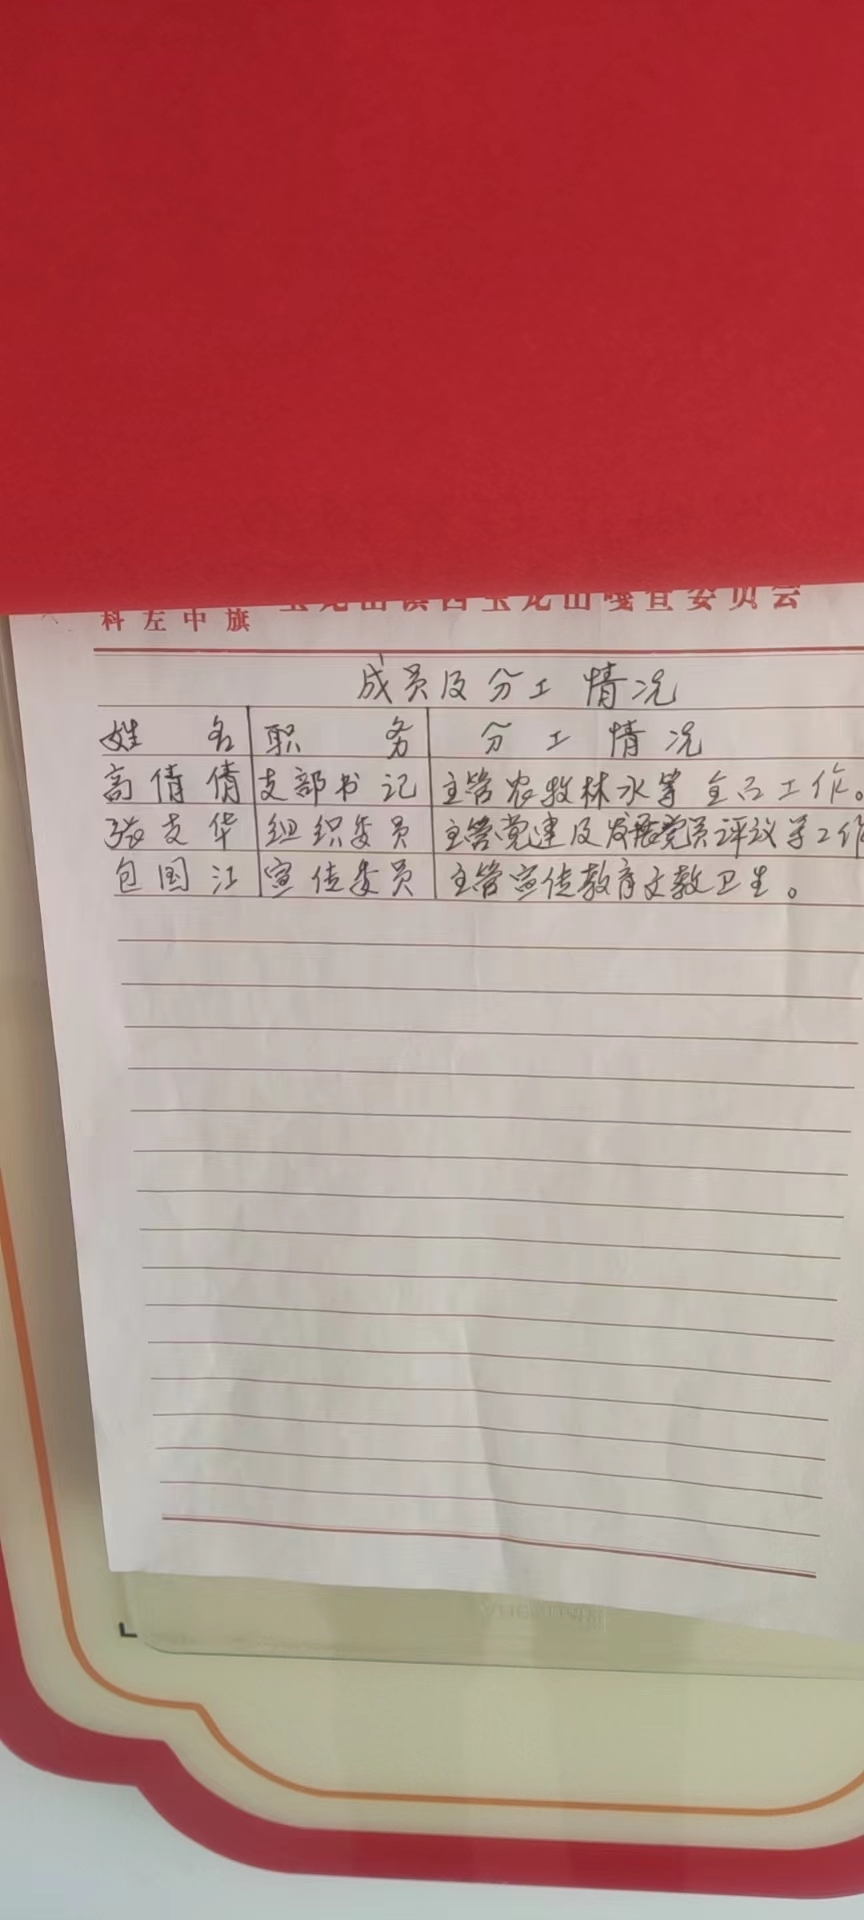 科左中旗 宝龙山镇西宝龙山嘎查委员会
成员及分工情况
姓名 职务 分工情况
高倩倩 支部书记 主管农牧林水等全面工作。
张支华 组织委员 主管党建及发展党员评议等工作
包国江 宣传委员 主管宣传教育文教卫生。